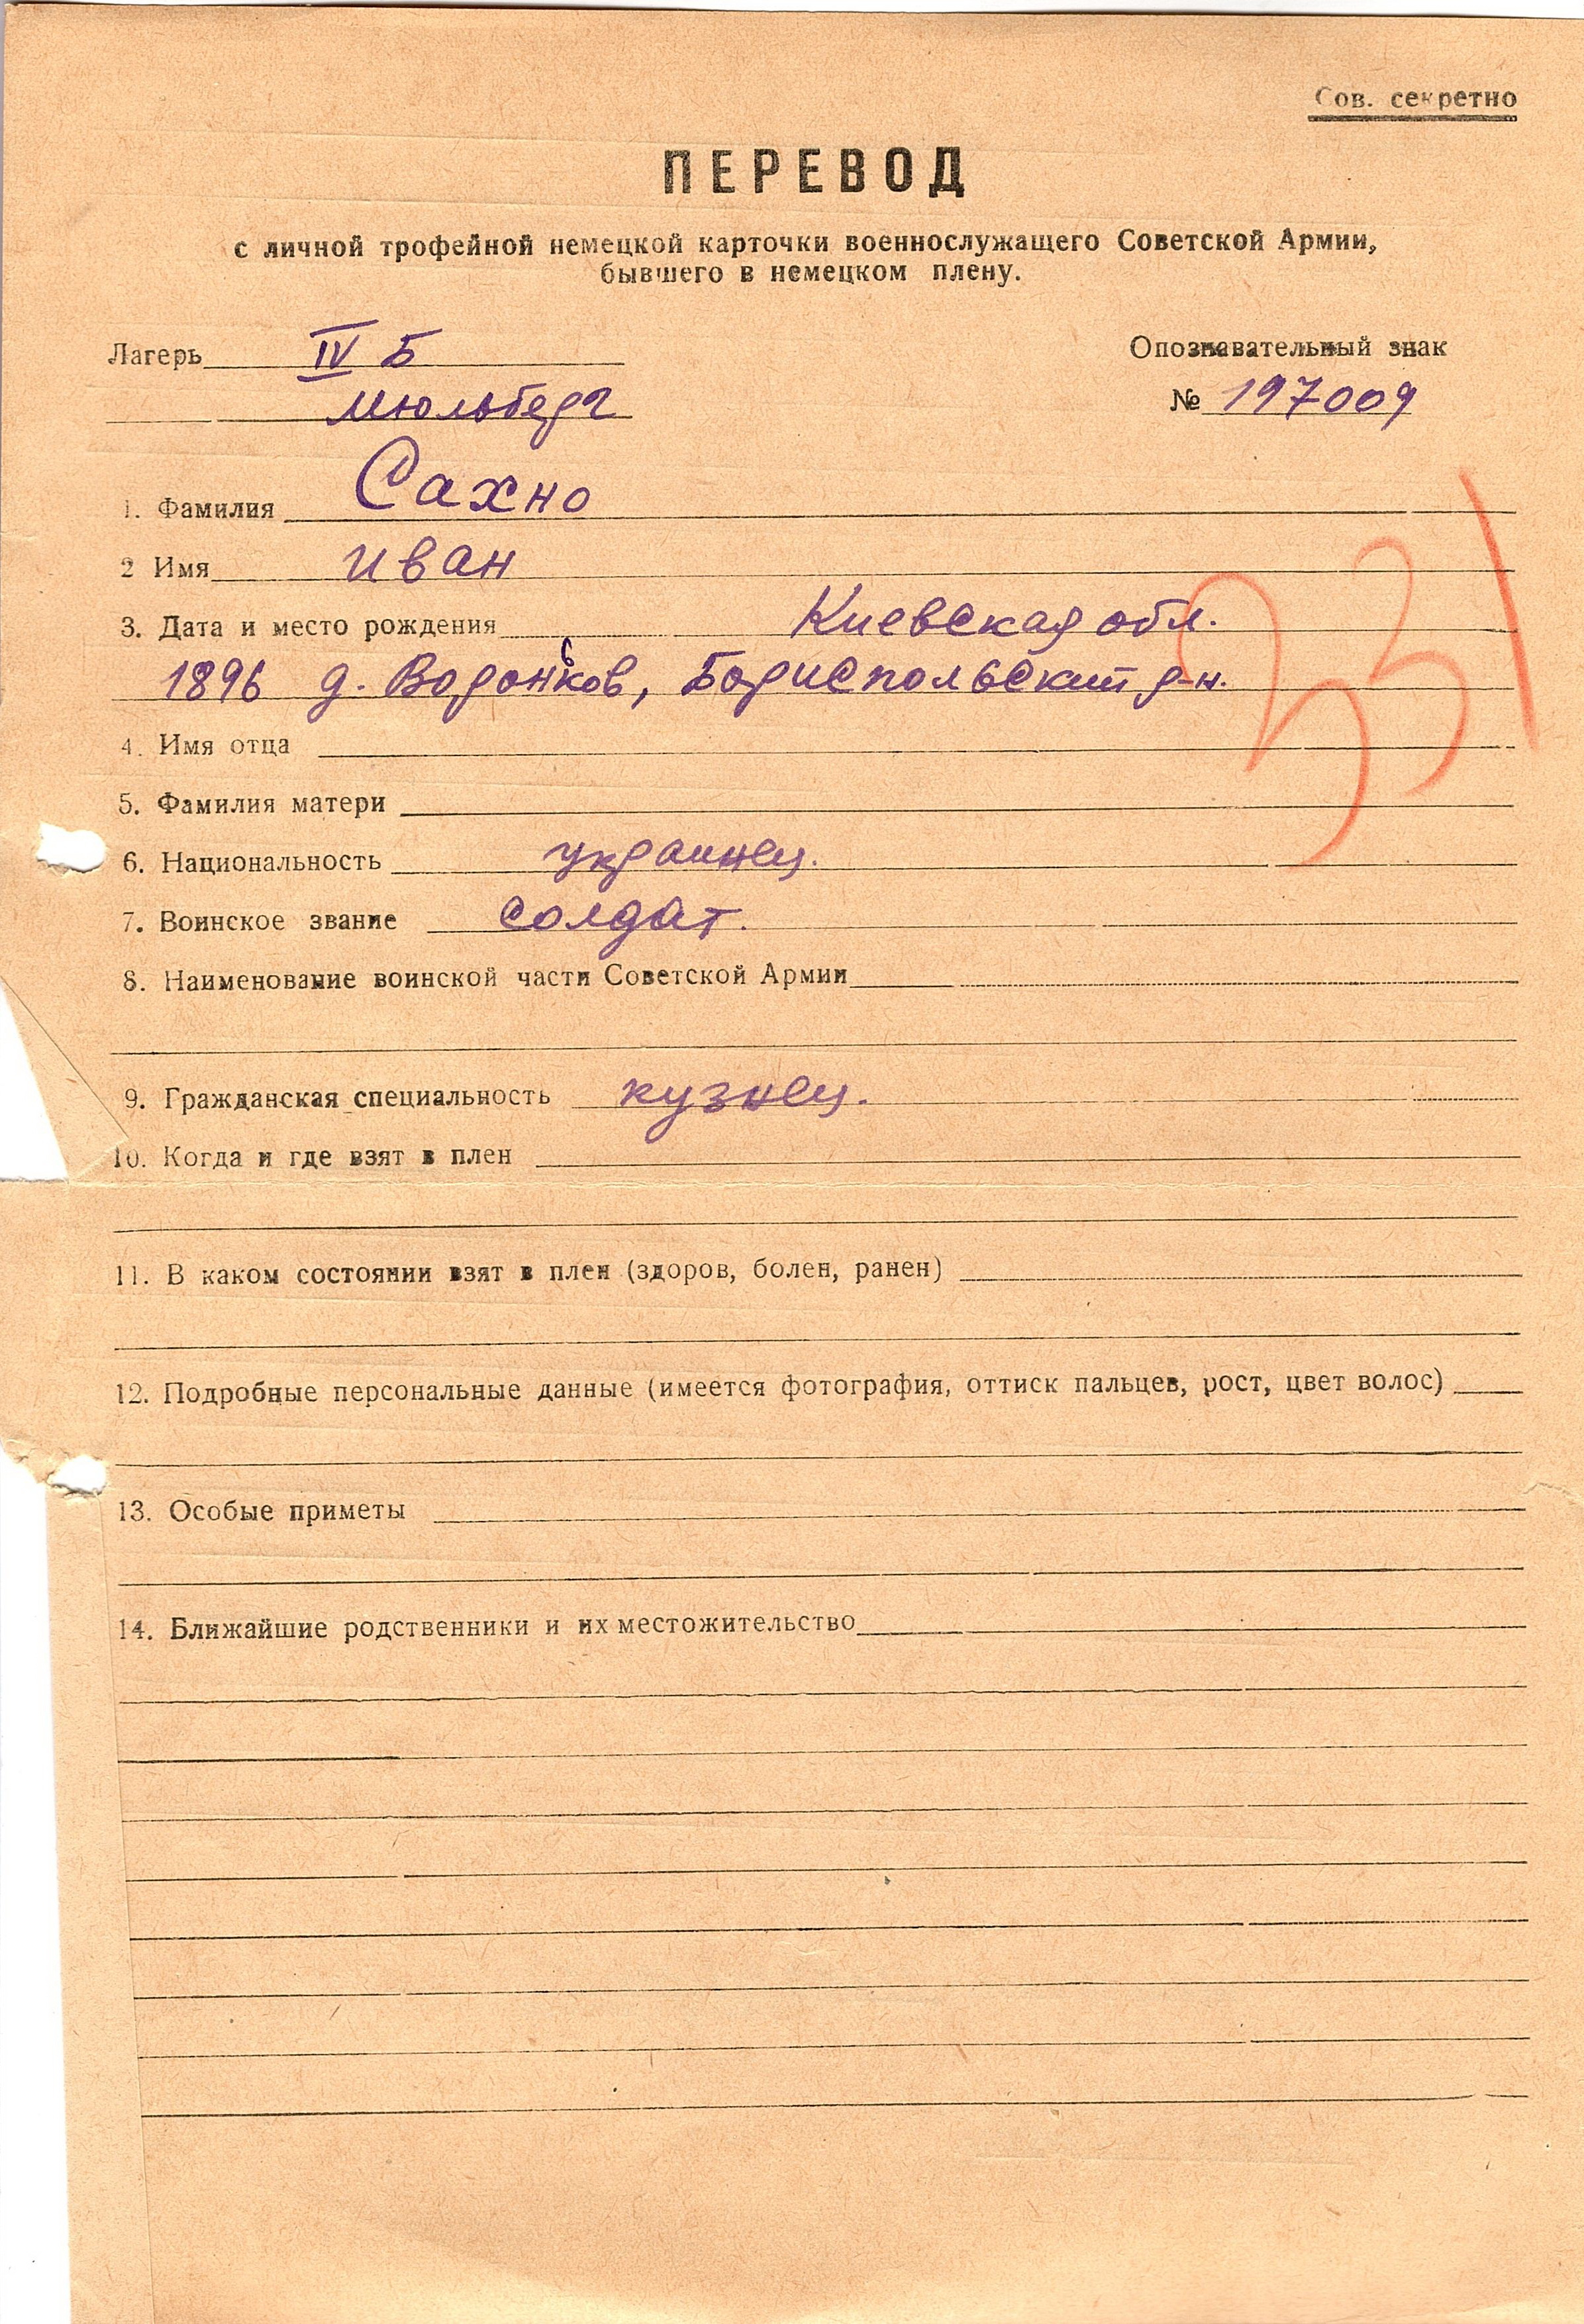 Сов. секретно
ПЕРЕВОД
с личной трофейной немецкой карточки военнослужащего Советской Армии,
бывшего в немецком плену.
Лагерь IV Б
Мюльберг
Опознавательный знак
№ 197009
1. Фамилия Сахно
2 Имя Иван
3. Дата и место рождения Киевская обл.
1896 д. Вороньков, Бориспольский р-н.
331
4. Имя отца
5. Фамилия матери
6. Национальность украинец.
7. Воинское звание солдат.
8. Наименование воинской части Советской Армии
9. Гражданская специальность кузнец.
10. Когда и где взят в плен
11. В каком состоянии взят в плен (здоров, болен, ранен)
12. Подробные персональные данные (имеется фотография, оттиск пальцев, рост, цвет волос)
13. Особые приметы
14. Ближайшие родственники и их местожительство